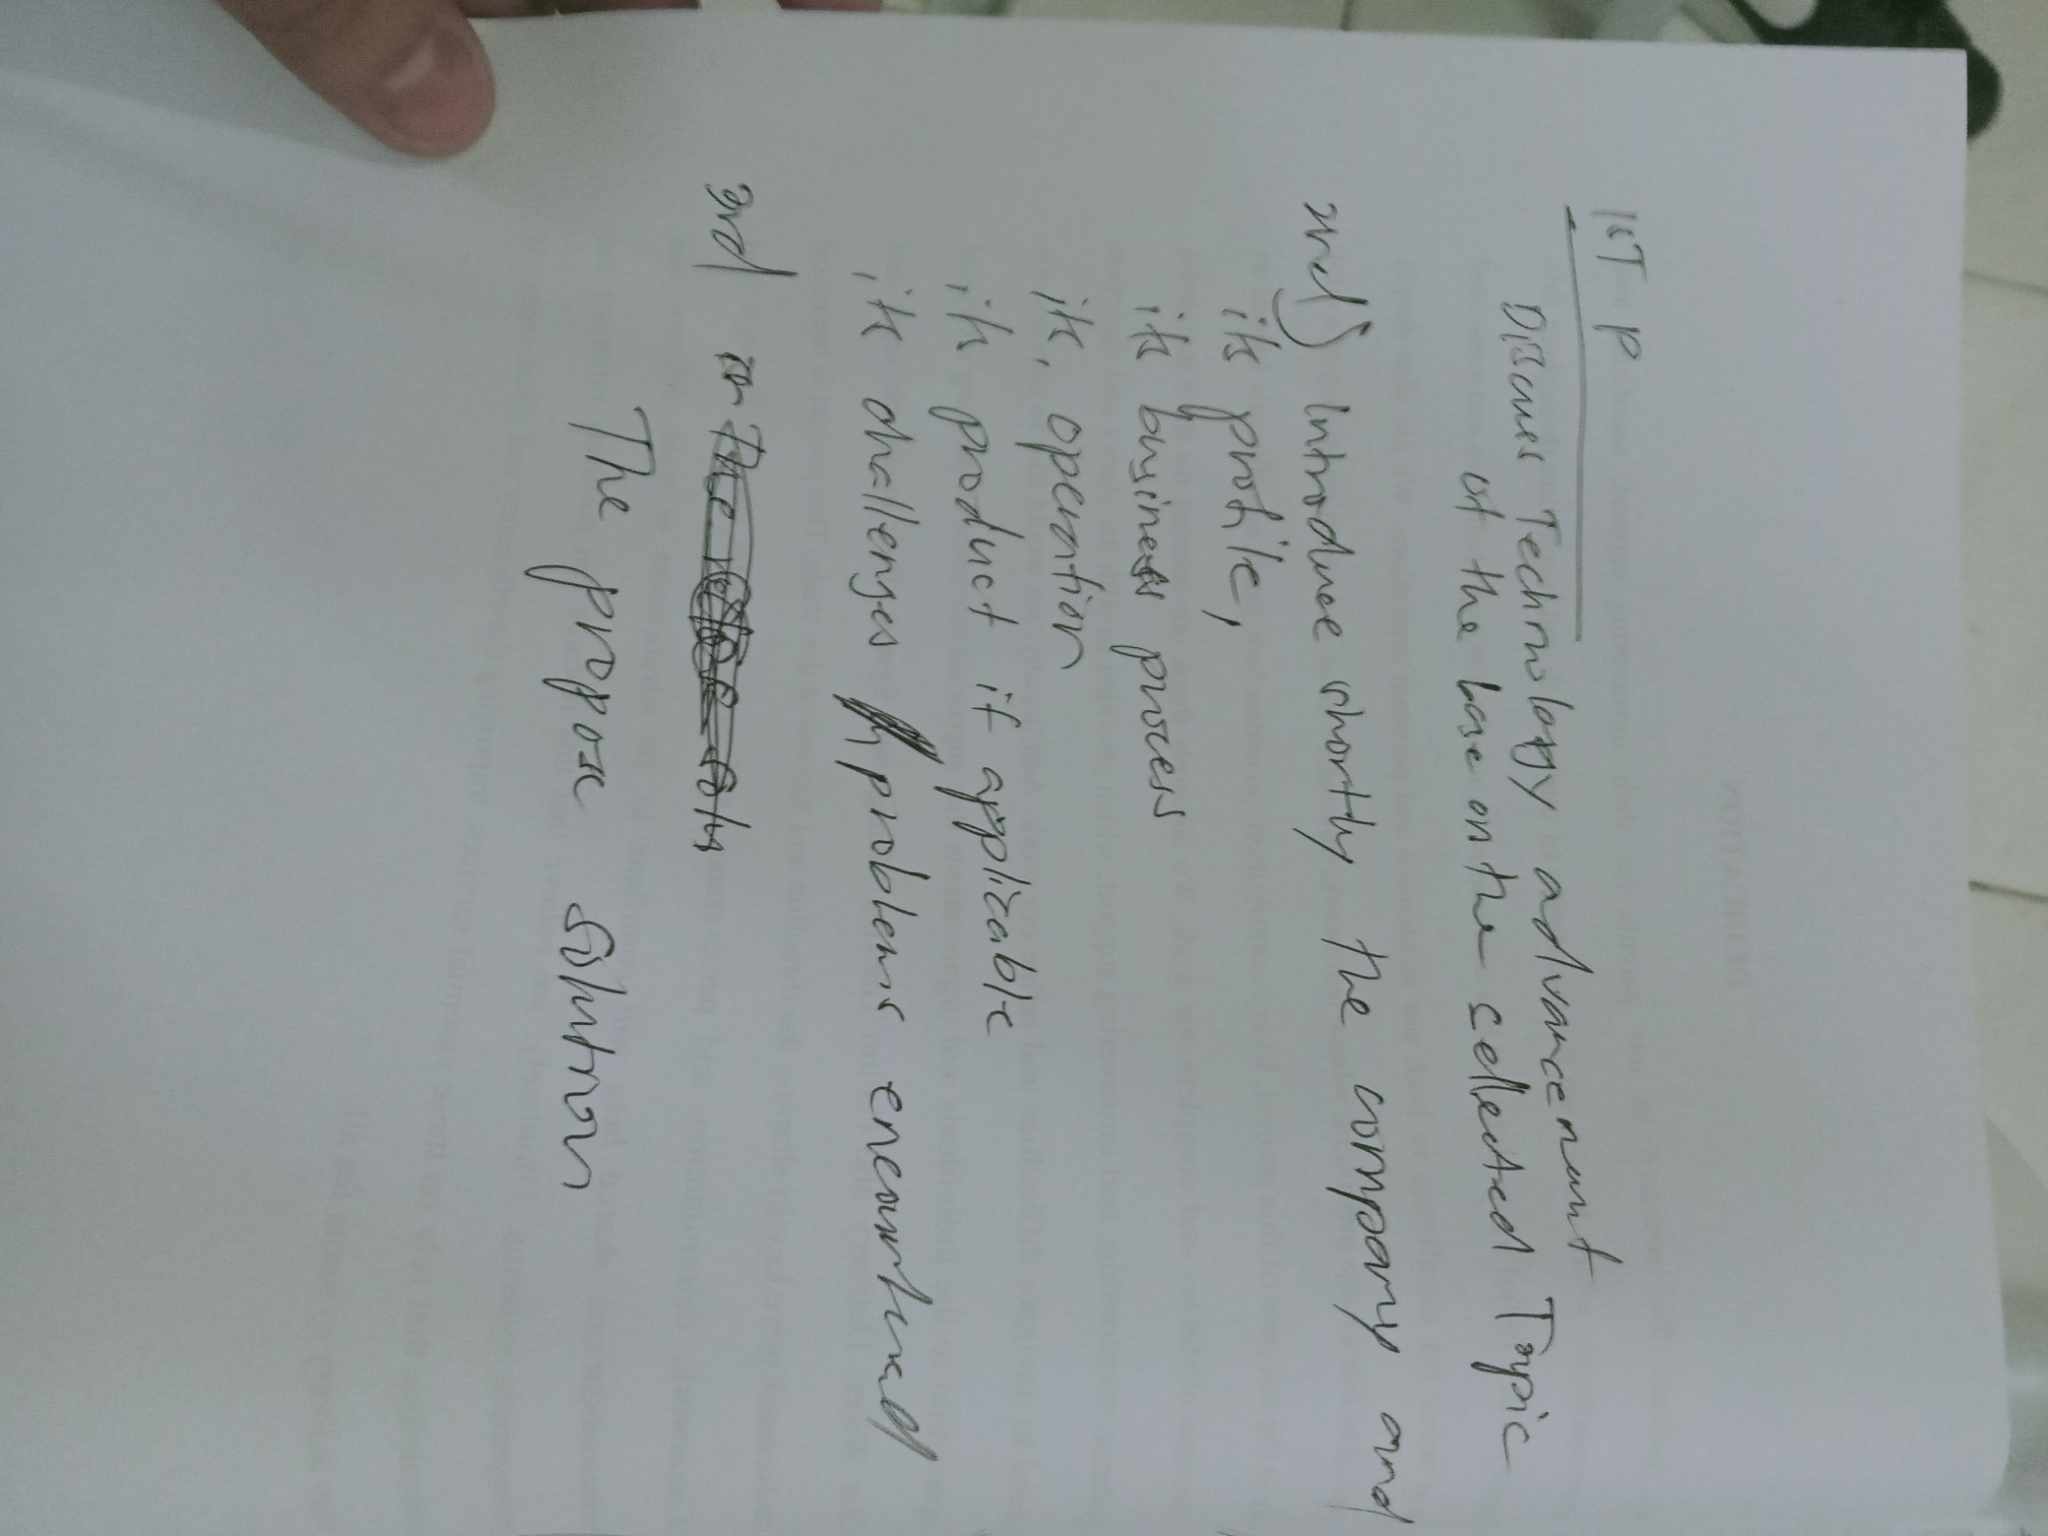 1ST P
Discuss Technology advancement
of the base on the sellected Topic
2nd) Introduce shortly the company and
its profile,
its business process
its, operation
its product if applicable
, its challenges problems encountered
3rd
The propose Solution